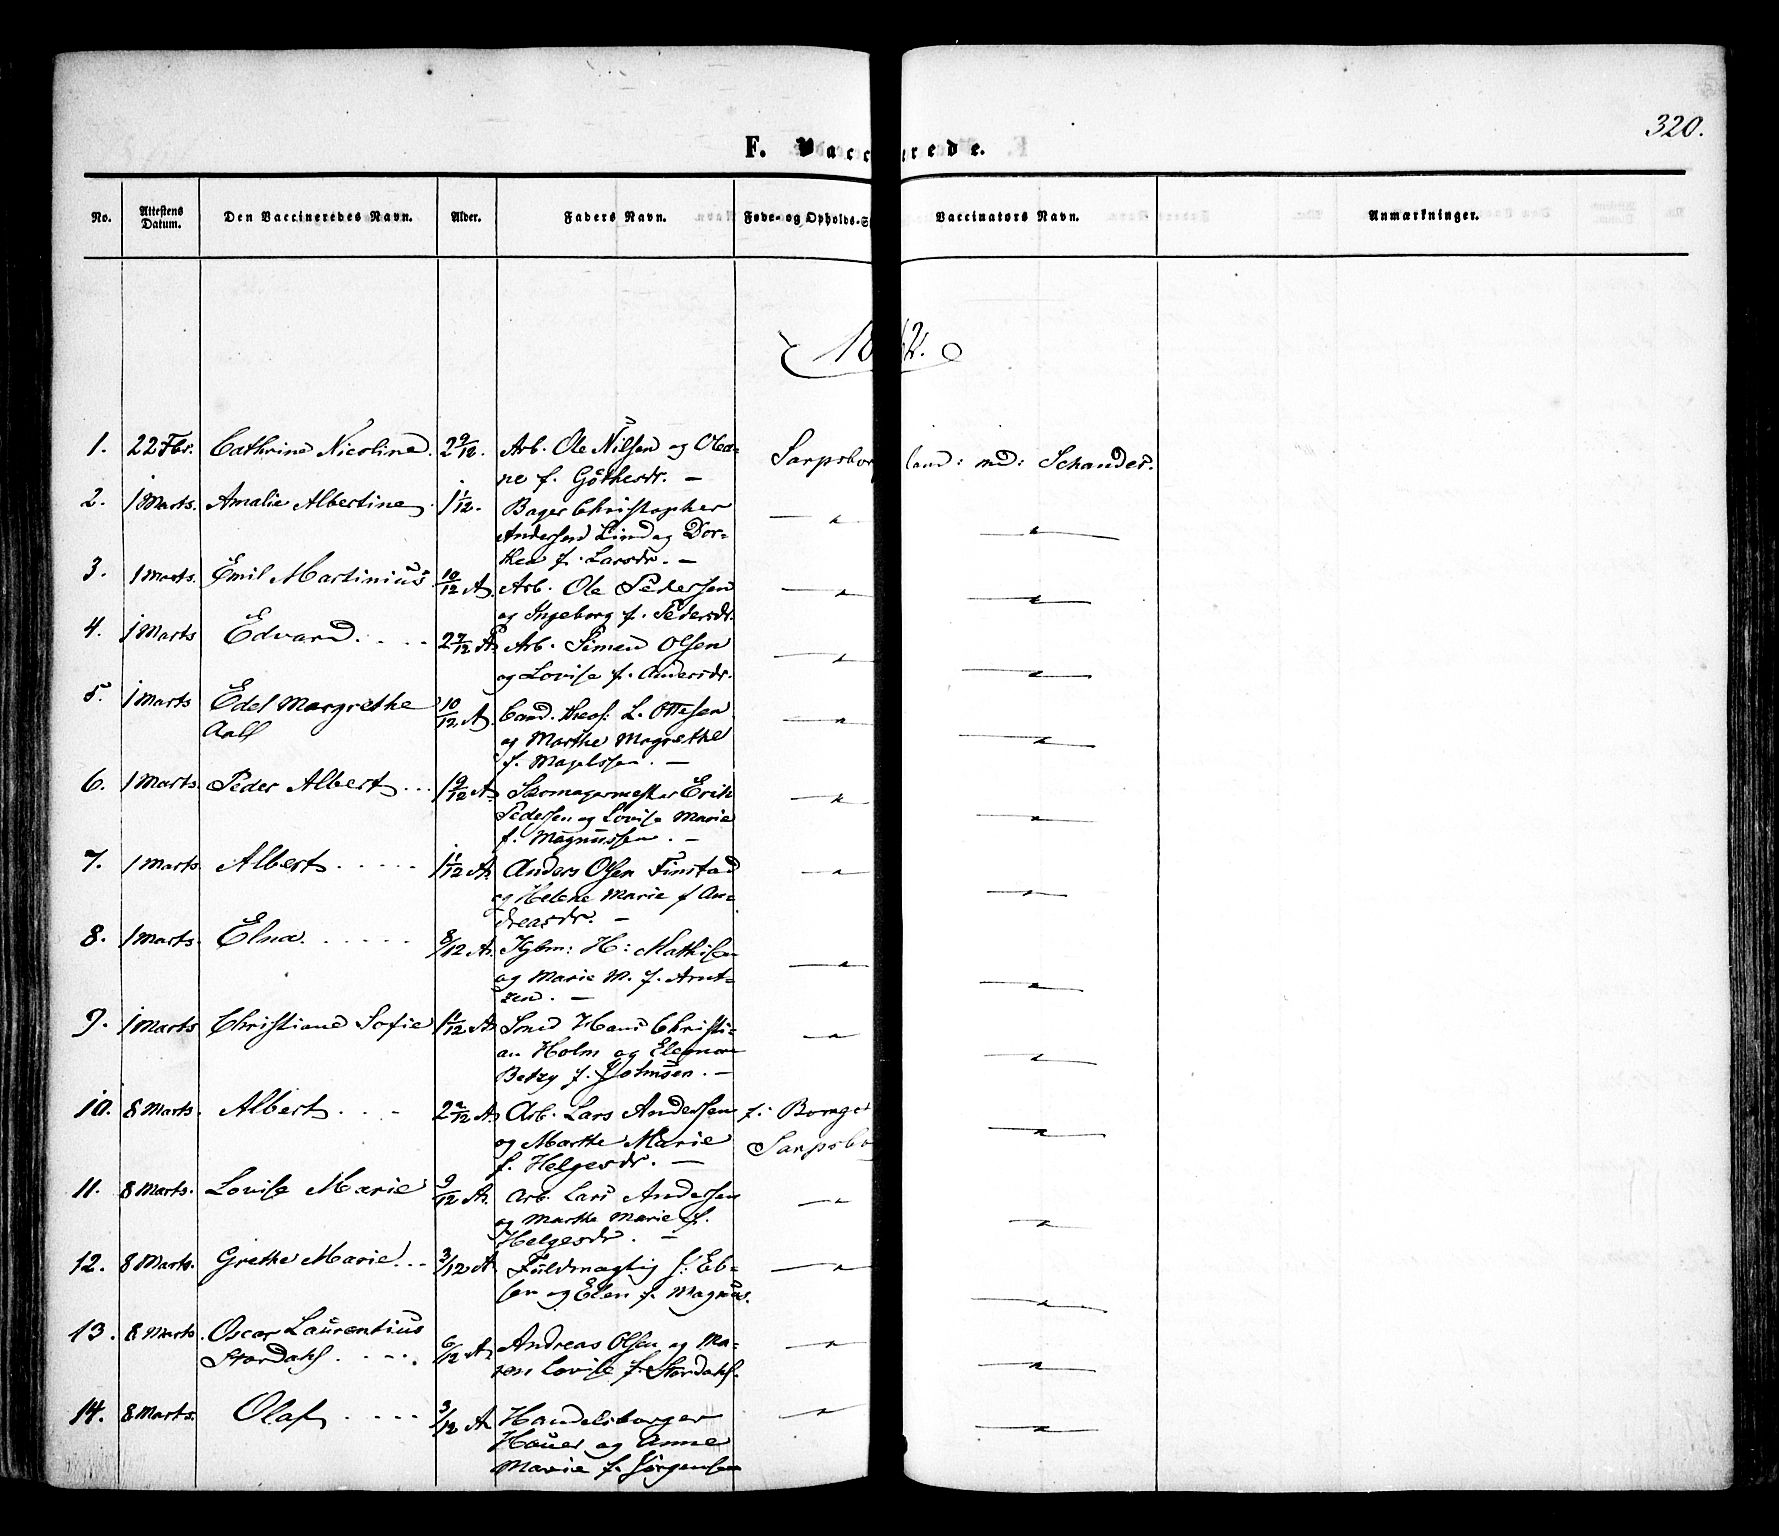 320.
F. Vacc nerede.
No. Attestens Datum. Den Vaccineredes Navn. Alder. Faders Navn. Føde- og Opholds-S Vaccinators Navn. Anmærkninger.
18 2.
1. 22 Fbr. Cathrine Nicoline 2 9/12. Arb. Ole Nilsen og Olea- Sarpsbor land: md: Schander.
ne f. Göthesdr. —
2. 1 Marts. Amalie Albertine 1 1/12. Bager Christopher — " — — " —
Andersen Lind og Dor-
thea f. Larsdr. —
3. 1 Marts. Emil Martinius 10/12 A. Arb. Ole Pedersen — " — — " —
og Ingeborg f. Pedersdr.
4. 1 Marts Edvard. . . . 2 7/12 A. Arb. Simen Olsen — " — — " —
og Lovise f. Andersdr.
5. 1 Marts Edel Margrethe 10/12 A. Cand. theol: L. Ottesen — " — — " —
Aall og Marthe Magrethe
f. Magelssen. —
6. 1 Marts. Peder Albert . . . 1 9/12 A. Skomagermester Erik — " — — " —
Pedersen og Lovise Marie
f. Magnussen. —
7. 1 Marts Albert . . . . . 1 1/12 A. Anders Olsen Finstad — " — — " —
og Helene Marie f An-
dreasdr. —
8. 1 Marts. Elna. . . . . . 8/12 A. Kjbm: H: Mathisen — " — — " —
og Marie M. f. Arnt-
zen. —
9. 1 Marts Christiane Sofie 1 1/12 A. Smed Hans Christi- — " — — " —
an Holm og Eleonore
Betzy f. Johnsen. —
10. 8 Marts. Albert . . . 2 2/12 A. Arb. Lars Andersen f: Borge — " —
og Marthe Marie Sarpsbo
f. Helgesdr. —
11. 8 Marts. Lovise Marie 9/12 A. Arb. Lars Andersen — " — — " —
og Marthe Marie f.
Helgesdr. —
12. 8 Marts. Grethe Marie . . 3/12 A. Fuldmægtig J: Eb- — " — — " —
sen og Elen f. Magnus.
13. 8 Marts. Oscar Laurentius 6/12 A. Andreas Olsen og Ma- — " — — " —
Stordahl . . . . ren Lovise f. Stordahl.
14. 8 Marts. Olaf . . . . 3/12 A. Handelsborger — " — — " —
Hauer og Anne
Marie f. Jörgensen